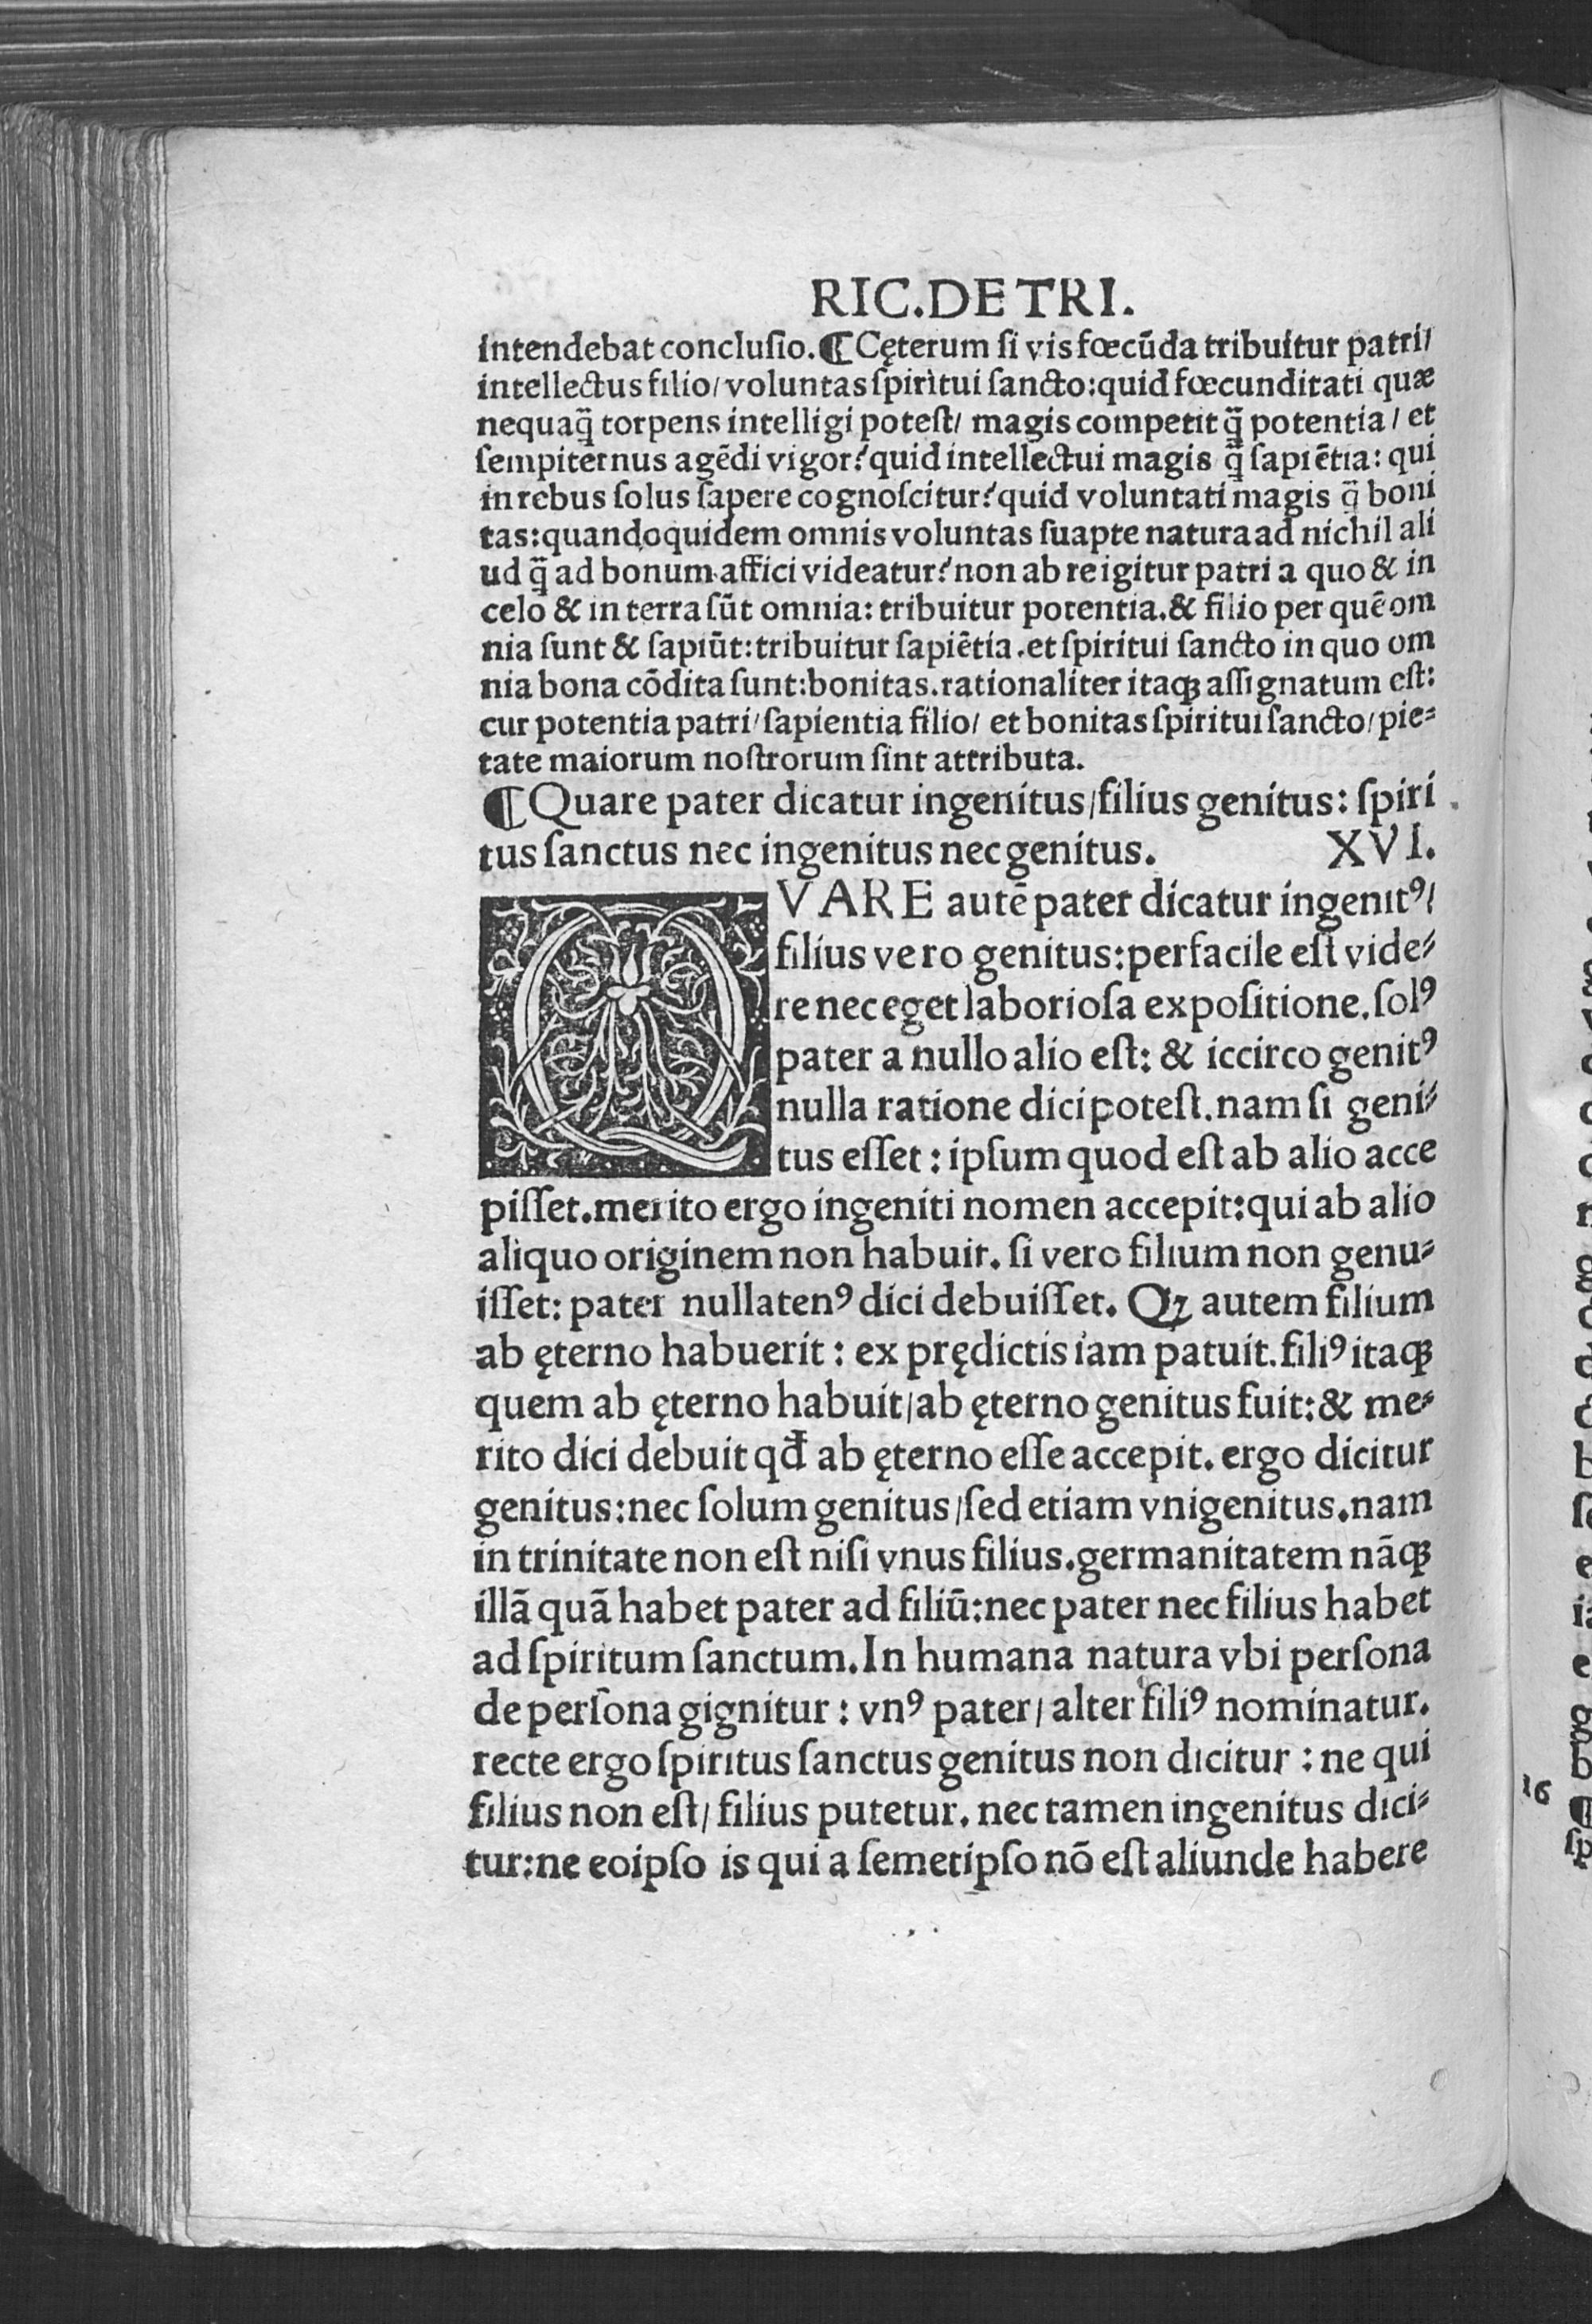 RIC.DE TRI.
intendebat conclusio.¶Cęterum si vis fœcūda tribuitur patri/
intellectus filio/voluntas spiritui sancto:quid fœcunditati quæ
nequaq̃ torpens intelligi potest/ magis competit q̃ potentia/ et
sempiternus agēdi vigor?quid intellectui magis q̃ sapiētia: qui
in rebus solus sapere cognoscitur?quid voluntati magis q̃ boni
tas:quandoquidem omnis voluntas suapte natura ad nichil ali
ud q̃ ad bonum affici videatur?non ab re igitur patri a quo & in
celo & in terra sūt omnia: tribuitur potentia.& filio per quē om
nia sunt & sapiūt:tribuitur sapiētia.et spiritui sancto in quo om
nia bona cōdita sunt:bonitas.rationaliter itaqꝫ assignatum est:
cur potentia patri/sapientia filio/ et bonitas spiritui sancto/pie⸗
tate maiorum nostrorum sint attributa.
¶Quare pater dicatur ingenitus/filius genitus: spiri
tus sanctus nec ingenitus nec genitus. XVI.
QVARE autē pater dicatur ingenitꝰ/
filius vero genitus:perfacile est vide⸗
re nec eget laboriosa expositione.solꝰ
pater a nullo alio est: & iccirco genitꝰ
nulla ratione dici potest.nam si geni⸗
tus esset: ipsum quod est ab alio acce
pisset.merito ergo ingeniti nomen accepit:qui ab alio
aliquo originem non habuit. si vero filium non genu⸗
isset: pater nullatenꝰ dici debuisset. Qꝫ autem filium
ab ęterno habuerit: ex prędictis iam patuit.filiꝰ itaqꝫ
quem ab ęterno habuit/ab ęterno genitus fuit:& me⸗
rito dici debuit qđ ab ęterno esse accepit. ergo dicitur
genitus:nec solum genitus/sed etiam vnigenitus.nam
in trinitate non est nisi vnus filius.germanitatem nāqꝫ
illā quā habet pater ad filiū:nec pater nec filius habet
ad spiritum sanctum.In humana natura vbi persona
de persona gignitur: vnꝰ pater/ alter filiꝰ nominatur.
recte ergo spiritus sanctus genitus non dicitur: ne qui
filius non est/ filius putetur. nec tamen ingenitus dici⸗
tur:ne eoipso is qui a semetipso nō est aliunde habere
16